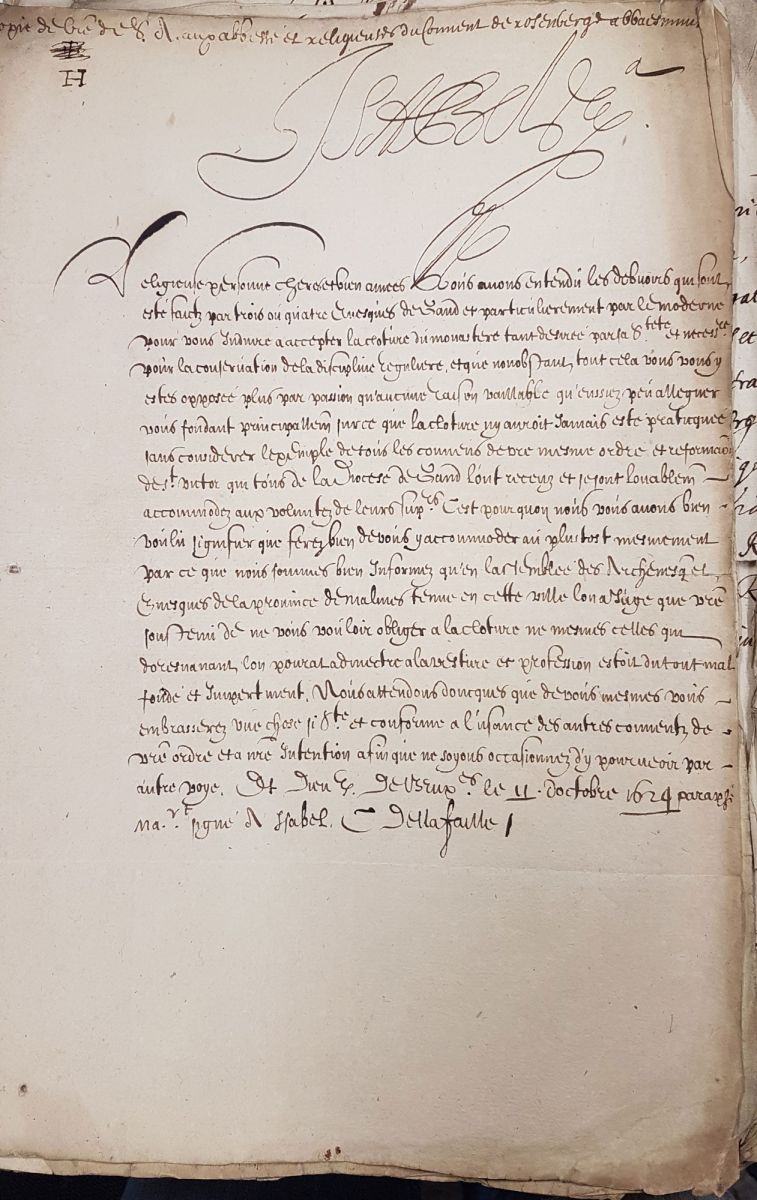 copie de l're de S. A. aux abbesse et religieuses du Convent de rosenberghe a
H
Isabella
Religieuse personne chere et bien amees Nous avons entendu les debvoirs qui sont
esté faictz par trois ou quatre Evesques de Gand et particulierement par le moderne
pour vous Induire a accepter la cloture du monastere tant desiree par sa S.tete et necess.re
pour la conservation de la discipline reguliere, et que nonobstant tout cela vous vous y
estes opposee plus par passion qu'aucune raison vaillable qu'eussiez peu alleguer
vous fondant principallem̄ sur ce que la cloture ny auroit Jamais esté practiquee
sans considerer l'exemple de tous les convens de v̄re mesme ordre et reformaō̄n
de S.t victor qui tous de la Diocese de Gand l'ont receuz et se sont louablem̄
accommodez aux voluntez de leurs sup.rs C'est pourquoy nous vous avons bien
voulu signifier que ferez bien de vous y accommoder au plustost mesmement
par ce que nous sommes bien Informez qu'en l'assemblee des Archevesq et
Evesques de la province de malines tenue en cette ville lon a Juge que v̄re
soustenu de ne vous vouloir obliger a la cloture ne mesmes celles qui
doresnavant lon pourat admectre a la vesture et profession estoit du tout mal
fondé et Impertinent. Nous attendons doncques que de vous mesmes vous
embrasserez une chose si S.te et conforme a l'usance des autres conventz de
v̄re ordre et a n̄re Intention afin que ne soyons occasionnez d'y pourveoir par
autre voye. Et Dieu &. De Brux.es le 11. d'octobre 1624 paraphé
Ma. v.t signé A Isabel. C Della faille